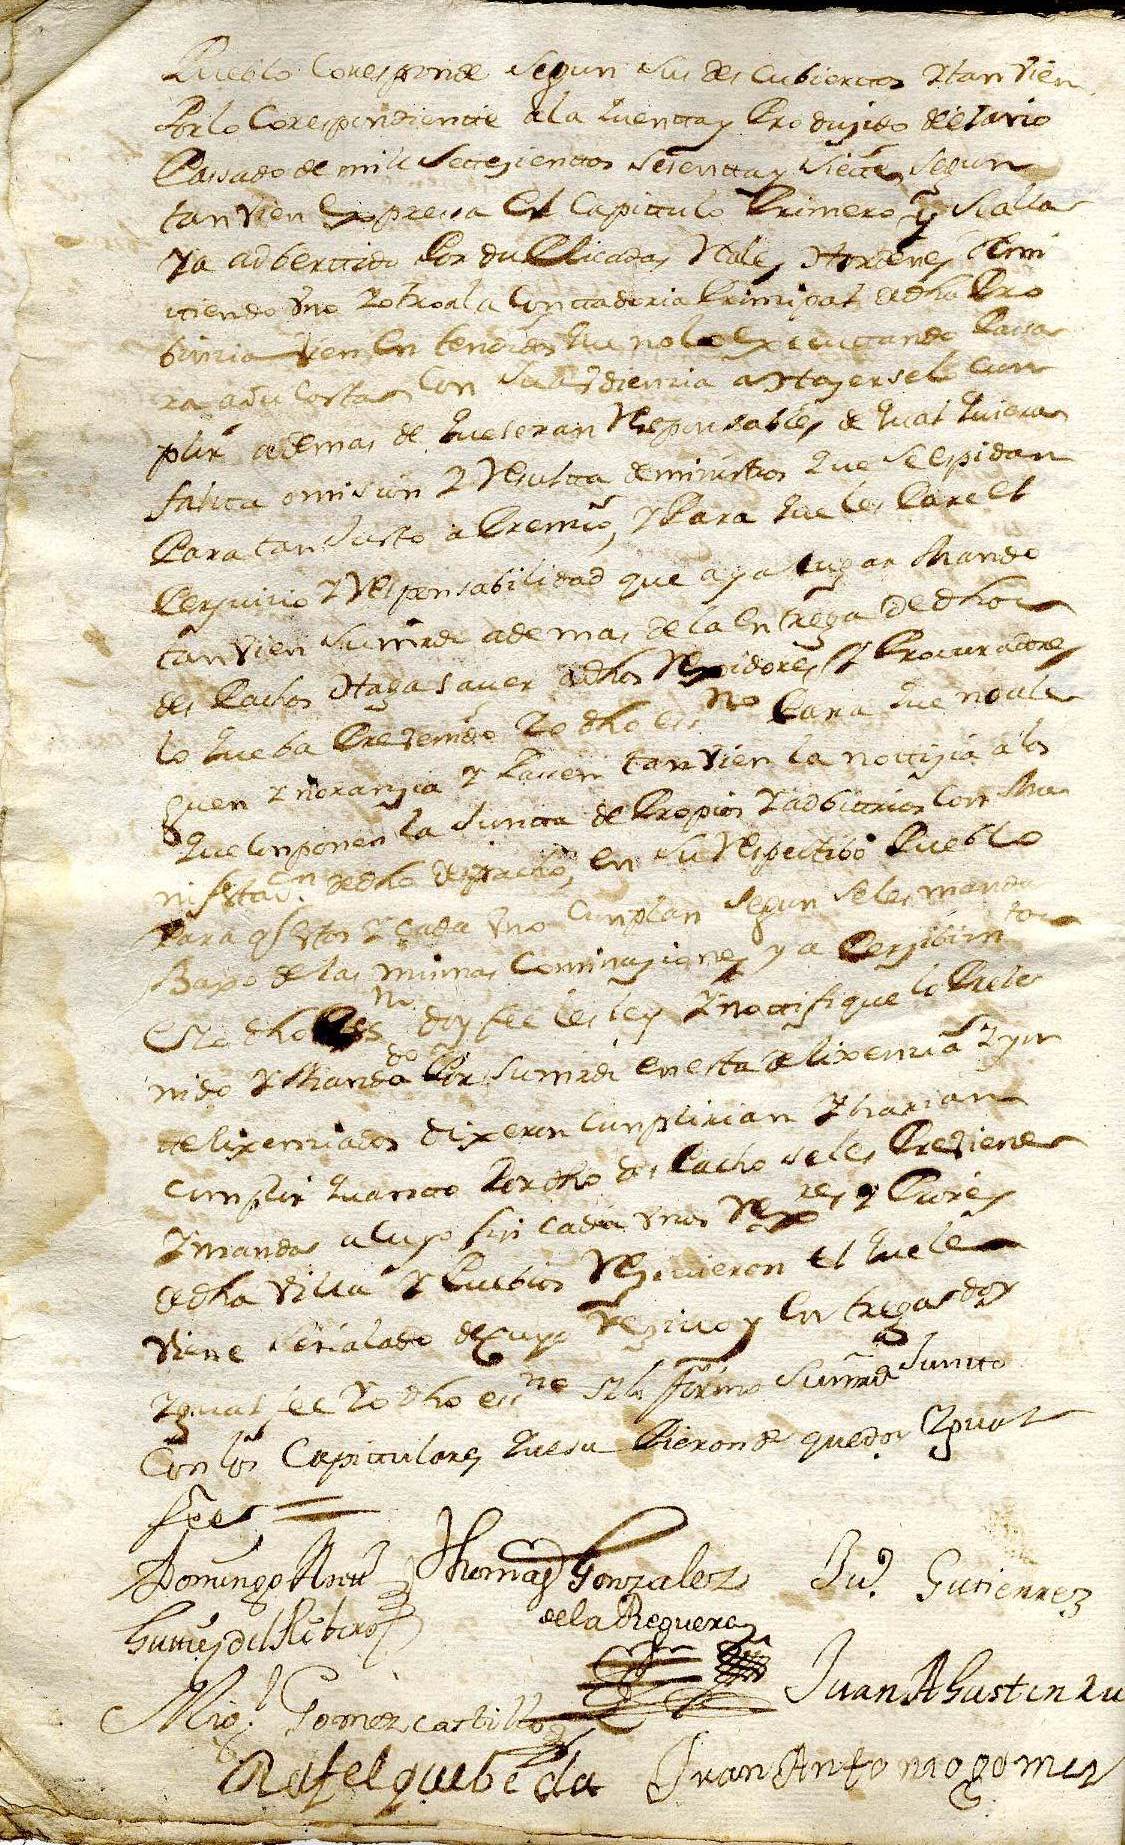 Pueblo Coresponde segun sus descubiertos Y tan vien
Por lo Corespondientte a la quentta y Produzido del año
Passado de mil settezienttos sesentta y Siette segun
tan vien Expressa El Capittulo Primero y se alla
Ya adberttido Por duPlicadas Reales Hordenes Remi
ttiendo Uno Y otro a la Conttaduria Principal de dha Pro
binzia vien En tendidos que no lo Executtando Passa
ra a su Costa Con su audienzia a Hazerselo cun
plir ademas de que seran Responsables de qual quiera
faltta omision Y Resultta de ministros que se espidan
Para tan Justo aPremio, Y Para que les Pare el
Perjuicio Y Responsabilidad que aya lugar Mando
tan vien su mrd ademas de la Entrega de dhos
des Pachos Haga saver a dhos Rexidores y Procuradores
lo que ba Prevenido Yo dho essno Para que no ale
guen Ynoranzia Y Pasen tan vien la nottizia a los
que Conponen la Juntta de Propios Y adbittrios Con Ma
nifesttazon de dho despacho, En su Respectibo Pueblo
Para q estos Y cada Uno Cunplan segun se les manda
Baxo de las mismas Cominaziones y a Perzibimtos
E Yo dho Essno doy fee les ley Y nottifique lo Preve
nido Y Mandado Por su mrd en esta dilixencia Y por
dilixenziados dixeron Cunplirian Y harian
Cunplir quantto Por dho des Pacho se les Previene
Y manda a cuyo fin cada Unos Rexres y Pures
de dha villa Y Pueblos Rezivieron el que le
viene señalado de cuyo Rezivo y En tregas doy
Ygual fee Yo dho essno Y lo firmo su mrd Juntto
Con los Capittulares que su Pieron de que doy Ygual
fee
Domingo Antt
Guttiez del Ribero
Thomas Gonzalez
de la Reguera
Ju.º Gutierrez
Mig.l Gomez castillo
Juan Agustin Ru
Rafel quebeda
Juan Antonio gomez